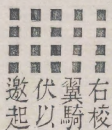 右校
翼騎
伏以
邀起